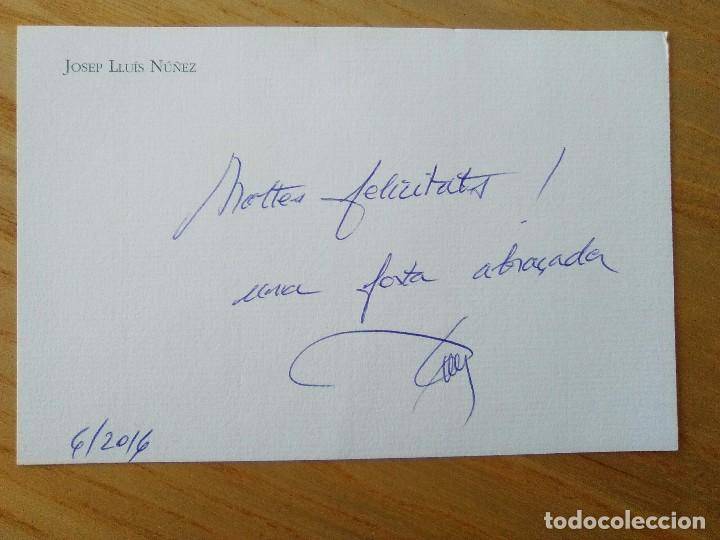 Josep Lluís Núñez
Moltes felicitats !
una forta abraçada
6/2016
todocoleccion.net